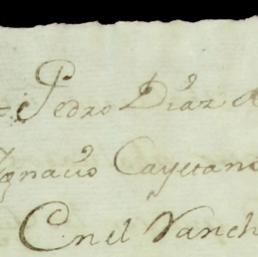 Pedro Diaz d
Ignacio Cayetano
Cnel Ranch